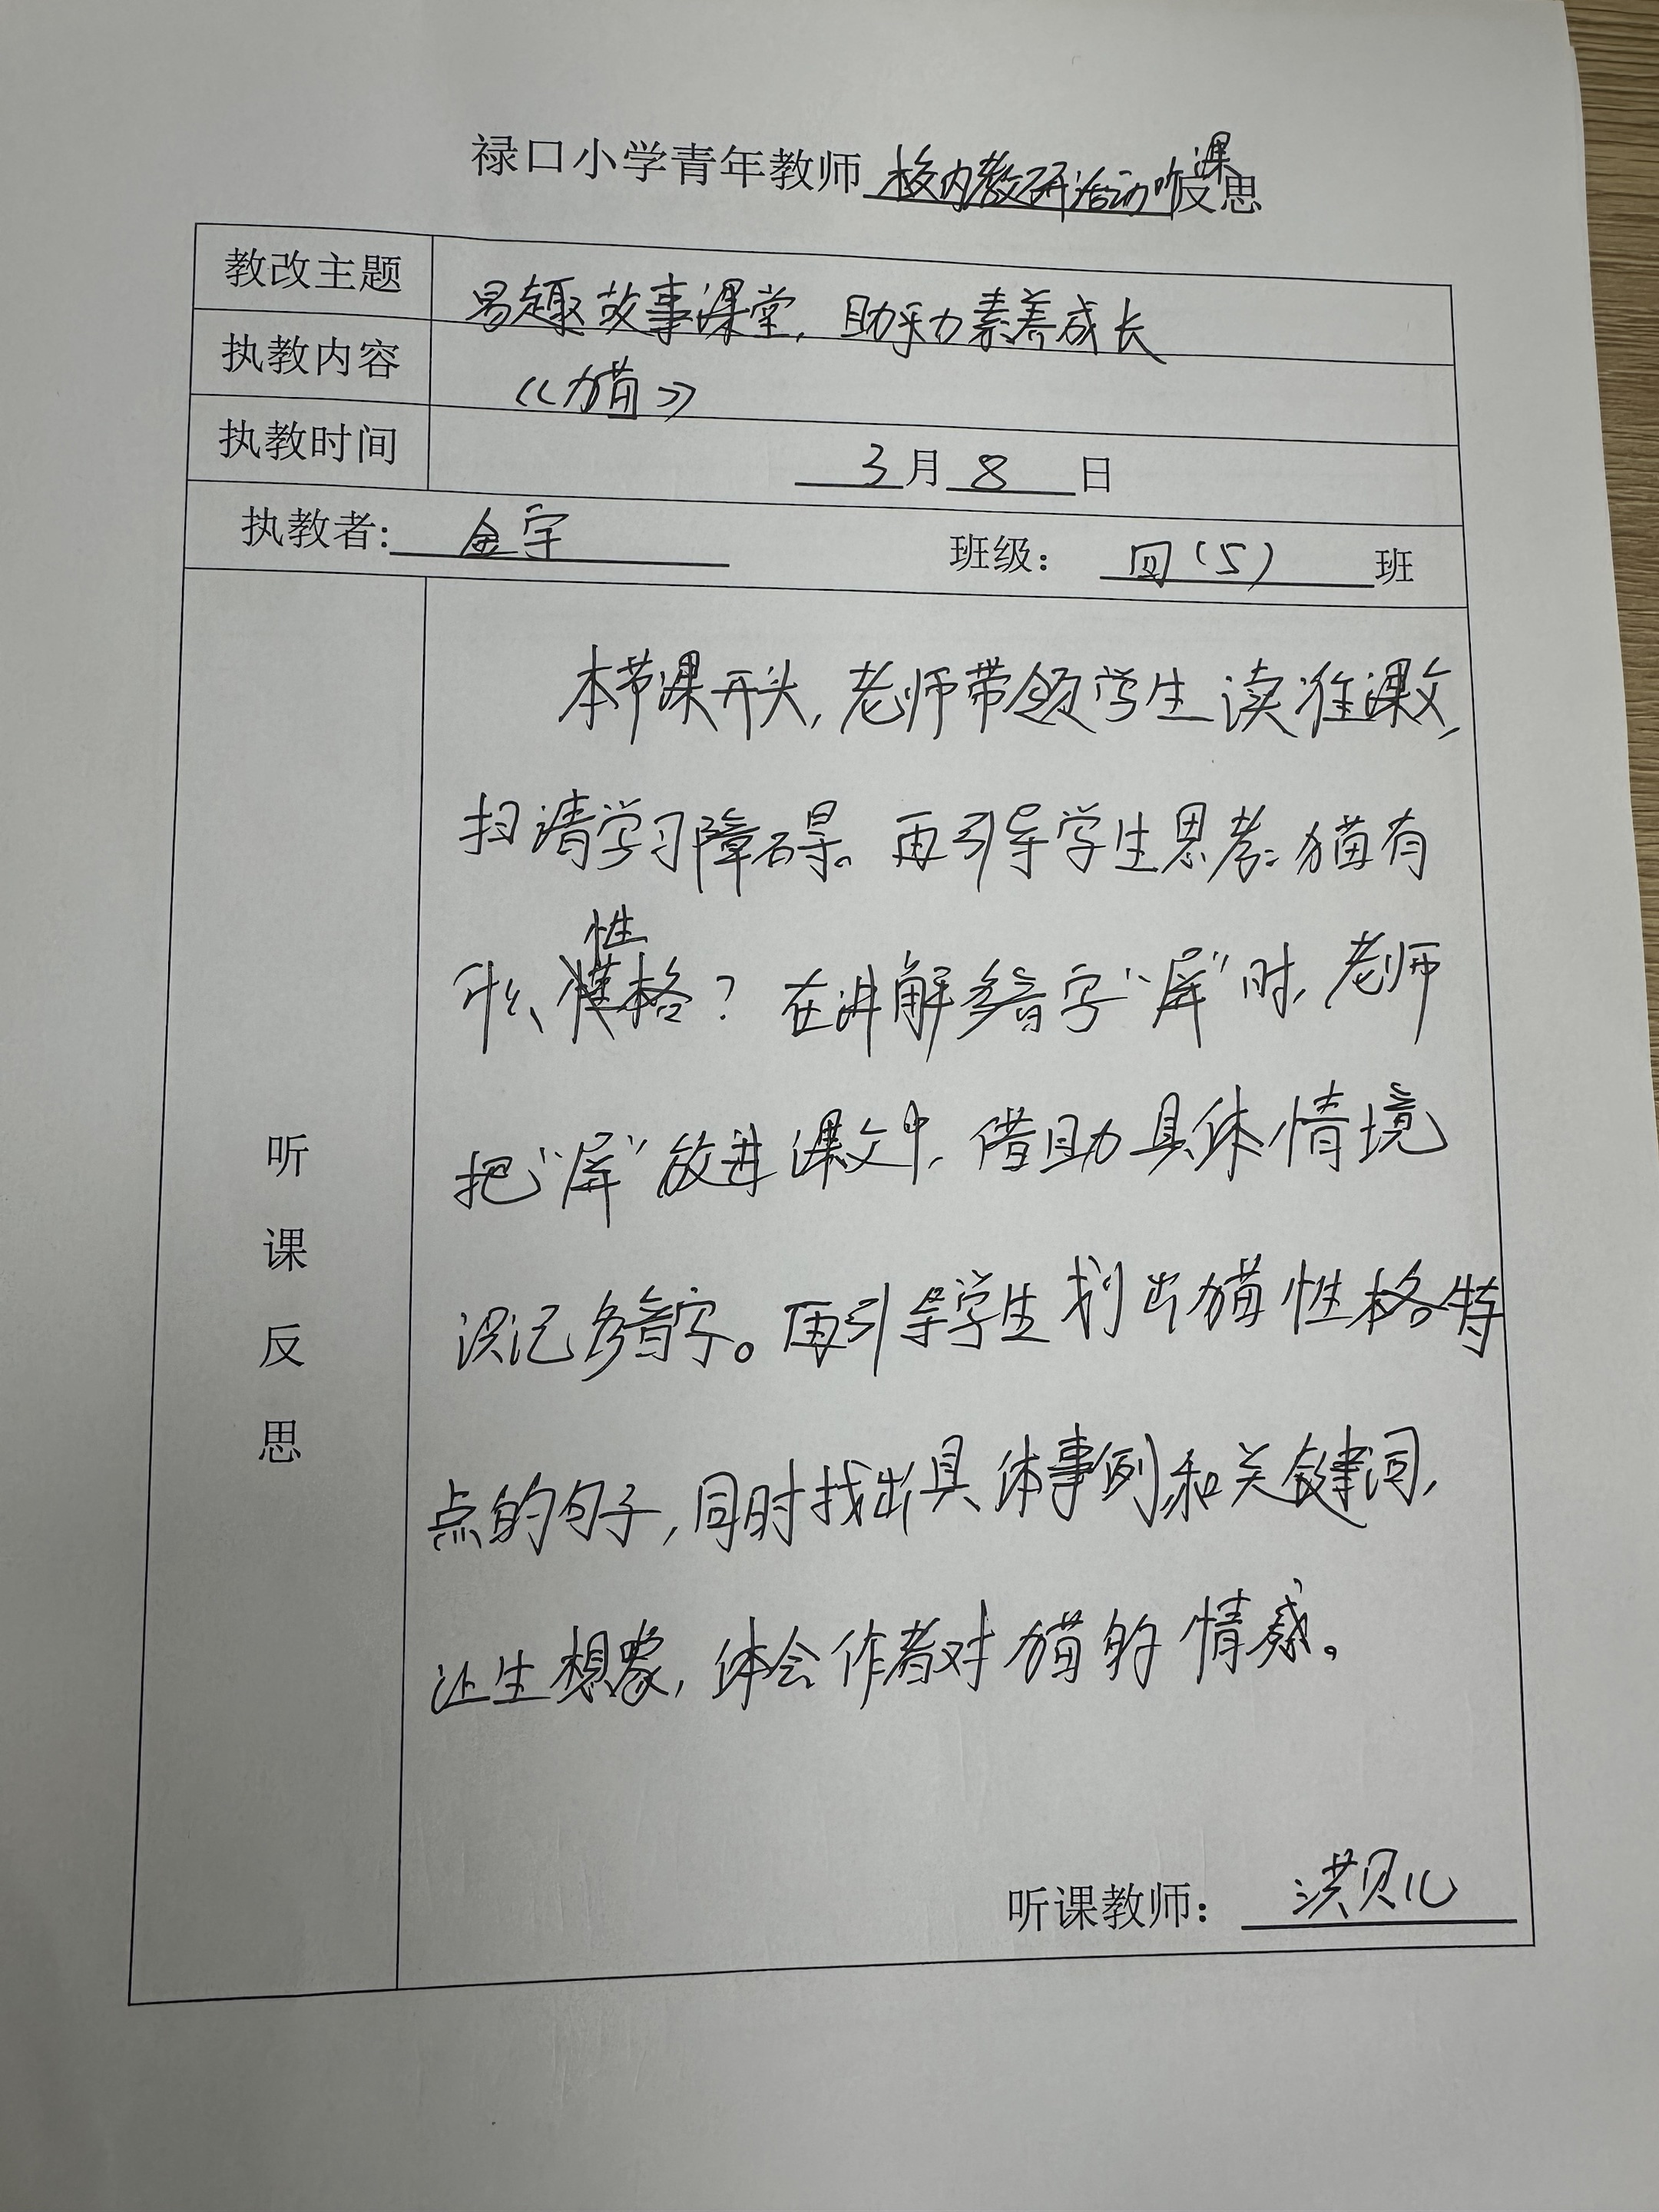 禄口小学青年教师校内教研活动听课反思
教改主题 易趣故事课堂，助力素养成长
执教内容 《猫》
执教时间 3月8日
执教者：金宇 班级：四（5）班
听课反思
本节课开头，老师带领学生读准课文，
扫清学习障碍。再引导学生思考：猫有
什么性格？在讲解多音字“屏”时，老师
把“屏”放进课文中，借助具体情境
识记多音字。再引导学生划出猫性格特
点的句子，同时找出具体事例和关键词，
让生想象，体会作者对猫的情感。
听课教师：洪贝儿